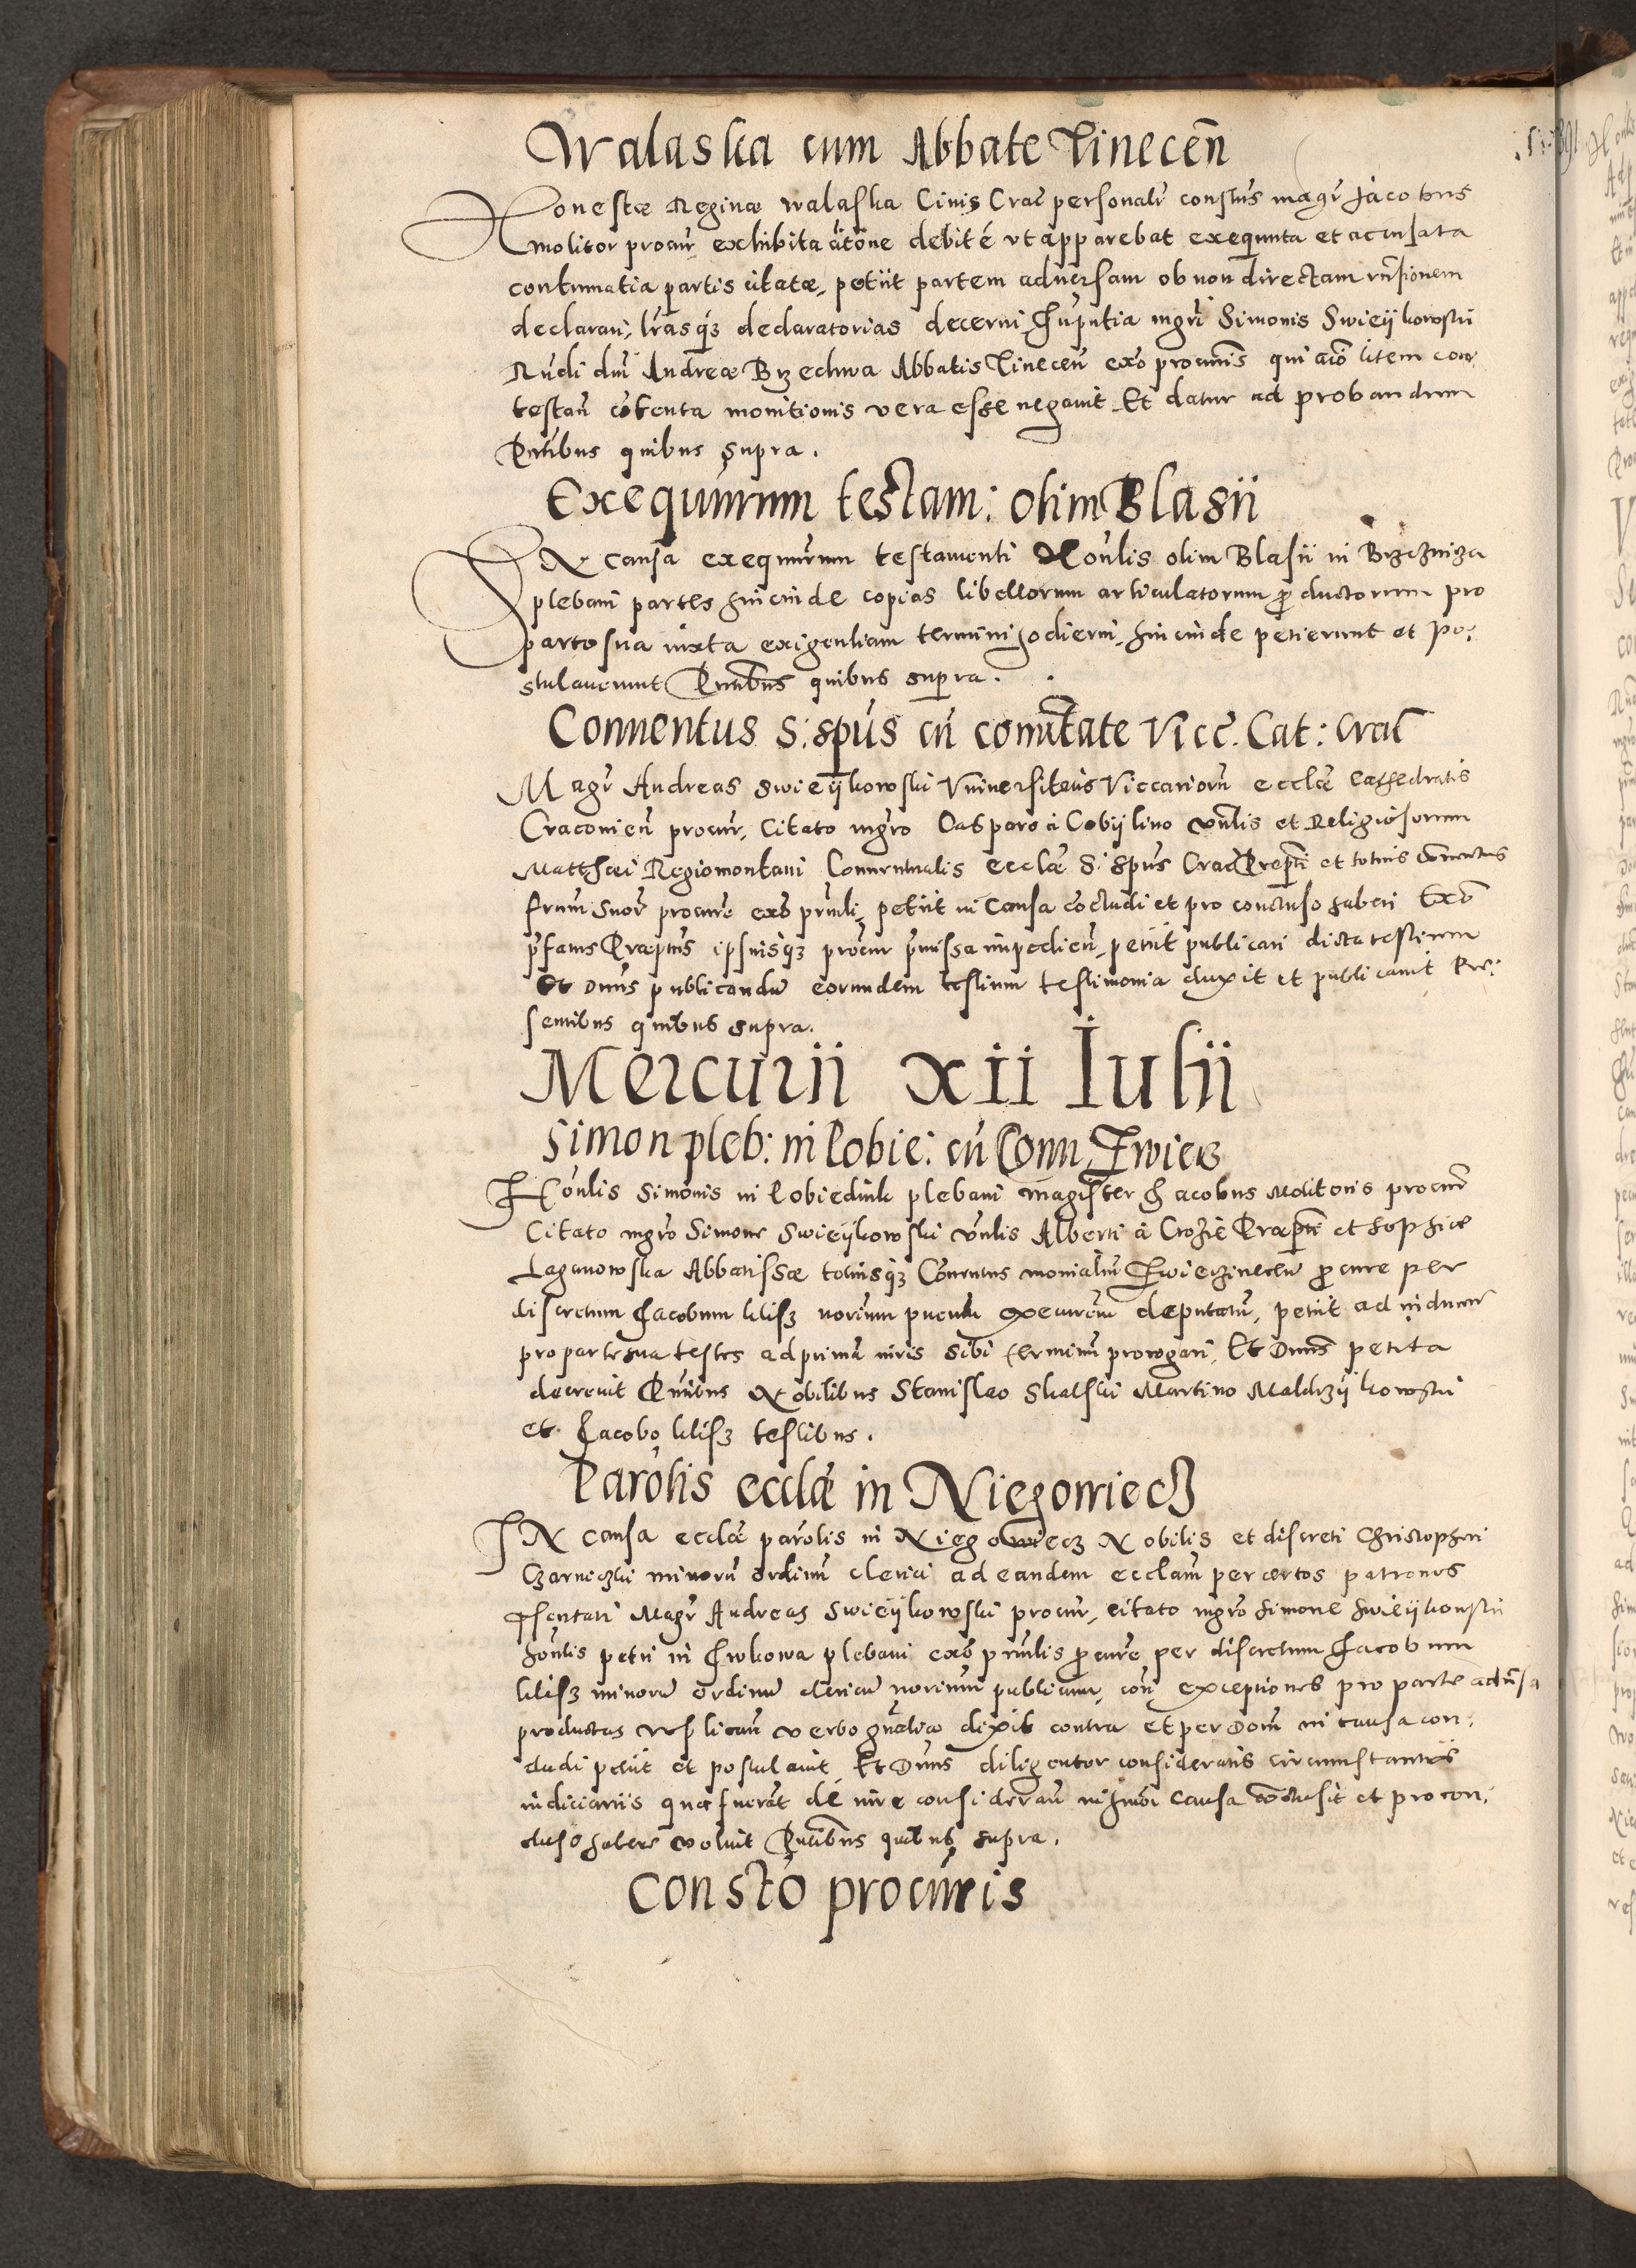 Walaska cum Abbate Tinecen̄
Honestæ Reginæ Walaska Ciuis Crac̄ personalr̄ constūs magr̄ Jacobus
molitor procur̄ exhibita citōne debité vt apparebat exequuta et accusata
contumatia partis citatæ, petiit partem aduersam ob non directam rn̄sionem
declarari, lrāsq3 declaratorias decerni, In pn̄tia mgr̄i Simonis Swieijkowski
Rn̄di dnī Andreæ Brzechwa Abbatis Tinecen̄ exō procuris qui aīo litem con
testan̄ cōtenta monitionis vera esse negauit. Et datur ad probandum
Pn̄tibus quibus supra.
Exequūrum testam: olim Blasii
IN causa exequūrum testamenti Honl̄is olim Blasii in Brzezniza
plebani partes hincinde copias libellorum articulatorum productorum pro
parte sua iuxta exigentiam termini hodierni, hincinde petierunt et po:
stulauerunt Pn̄tibus quibus supra.
Conuentus S: spūs cū comūtate Vicē. Cat: Crac̄
Magr̄ Andreas Swieijkowski Vniuersitatis Viccariorū ecclæ Cathedralis
Cracouien̄ procur̄, Citato mgrō Casparo à Cobijlino vn̄lis et Religiosorum
Matthæi Regiomontani Conuentualis ecclæ S: Spūs Crac̄ Præpti et totius Conuentus
frum suor̄ procure exō prn̄li, petiit in causa cōcludi et pro concluso haberi Exō
pr̄fatus Præptus ipsiusq3 procur̄ pr̄missa impedien̄, petiit publicari dicta testium
Et Dnūs publicandu eorundem testium testimonia duxit et publicauit Præ:
sentibus quibus supra.
Mercurii xii Iulii
Simon pleb: in Lobie: cū Conu. Zwierz
Honl̄is Simonis in Lobiedink plebani magister Jacobus Molitoris procur̄
Citato mgrō Simone Swieijkowski vn̄lis Alberti à Præpti et Sophiæ
Laganowska Abbatissæ totiusq3 Conuentus monialiū Zwierzinecen̄ procure per
discretum Jacobum notrium pucum exeurem deputatū, petiit ad inducen̄
pro parte sua testes ad primā iuris sibi terminū prorogari. Et Dnūs petita
decreuit Pn̄tibus Nobilibus Stanislao Skalski Martino Maldrzijkowski
et Jacobo testibus.
Parolis ecclæ in Niegowiecz
IN causa ecclæ parolis in Niegowiecz Nobilis et discreti Christopheri
Czarniczki minorū ordinū clerici ad eandem ecclam̄ per certos patronos
pr̄sentati Magr̄ Andreas Swieijkowski procur̄, citato mgrō Simone Swieijkowski
honl̄is petri in plebani exō prn̄lis procure per discretum Jacobum
minorū ordinū clericū notrium publicum, con̄ exceptiones pro parte aduersa
productas replican̄ verbo gn̄ali dixit contra et per Dom̄ in causa con:
cludi petiit et postulauit. Et Dnūs diligenter consideratis circumstantiis
iudiciariis quæ fuerāt de iure consideran̄ in hmōi causa cōclusit et pro con:
cluso habere voluit Pn̄tibus quibus supra.
Constō procuris